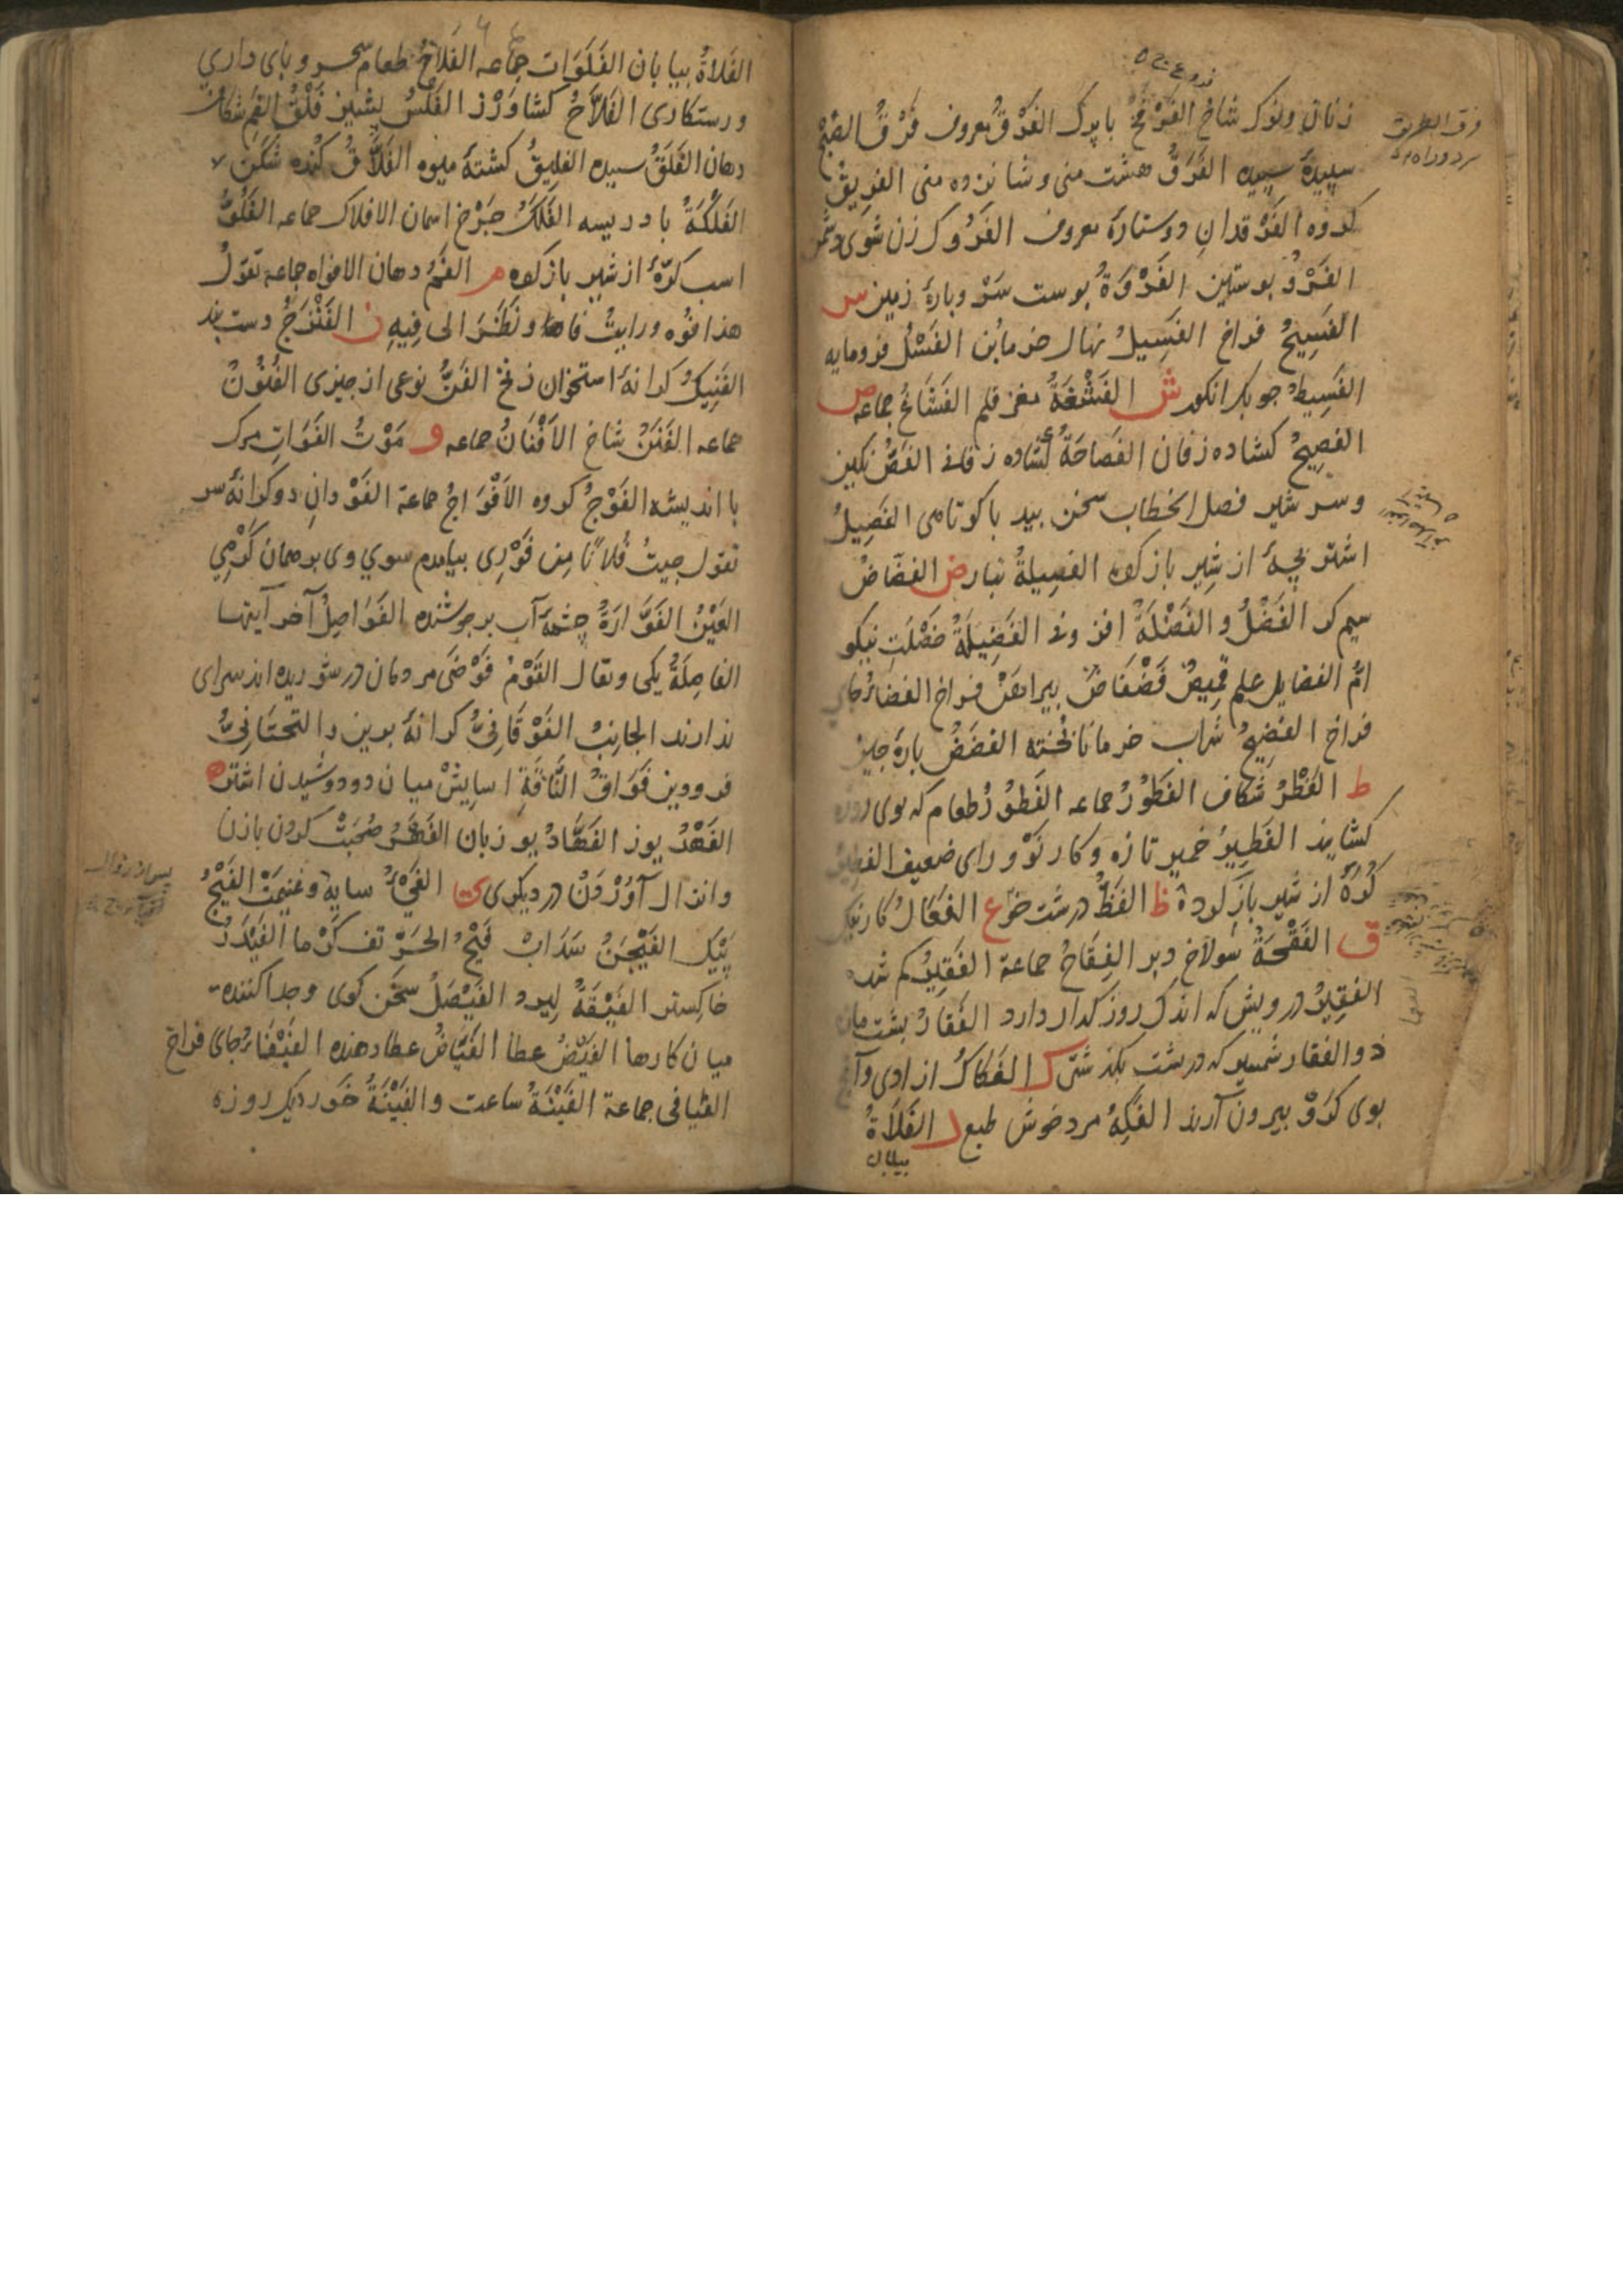 زنان ونوک شاخ الفَرْفَخُ بابرک الفَرْقُ معروف فَرْقُ الصُّبْحِ
سپیدهٔ سپیده الفَرَقُ هشت منی وشانزده منی الفریقُ
کروه الفَرْقدانِ دوستارهٔ معروف الفَرُوک زن شوی دشمن
الفَرْوُ بوستین الفَرْوَةُ بوست سَرْ وبارهٔ زمین س
الفَسِیحُ فراخ الفَسِیلُ نهال خرمابُن الفَسْلُ فرومایه
الفَسِیطُ جوبک انکور ش الفَشْغَةُ مغز قلم الفَشَاغُ جماعه ص
الفصِیحُ کشاده زفان الفَصَاحَةُ کشاده زفانی الفَصُّ نکین
وسر شیر فصل الخطاب سخن بید باکوتاهی الفَصِیلُ
اشتر بچهٔ از شیر بازکرده الفصیلةُ تبار ض الفضَّاضُ
سیم کر الفَضْلُ والفَضْلَةُ افزونی الفَضِیلَةُ خصْلَتِ نیکو
امّ الفضایل علم قمیصٌ فَضْفَاضٌ بیراهنْ فراخ الفضاءُ جای
فراخ الفضِیخُ شراب خرمانا پخته الفضَضُ بارهٔ جیز
ط الفَطْرُ شکاف الفُطُوْرُ جماعه الفَطُوْرُ طعام که بوی روزه
کشایند الفَطِیرُ خمیر تازه وکار نَوْ ورای ضعیف الفطیم
کُرّهٔ از شیر بازکرده ظ الفَظُّ درشت خوْ ع الفَعَالُ کار نیک
ق الفَقْحَةُ سولاخ دبر الفِقَاحُ جماعة الفَقِیدُ کم شده
الفقِیرُ درویش که اندک روزکدار دارد الفَقَارُ بشت مازه
ذوالفقار شمشیر که در بشت بکذشتی ک الفَکاکُ ازادی وآنچ
بوی کَرَوْ بیرون آرند الفَکِهُ مرد خوش طبع ل الفَلَاةُ
بیابان
الفَلاةُ بیابان الفَلَوَات جماعه الفَلَاحُ طعام سحر وبای داری
ورستکاری الفَلاَّحُ کشاوَرْز الفَلْسُ بشیز فَلْقُ الفَمِ شکاف
دهان الفَلَقُ سپیده الفلیقُ کشتهٔ میوه الفَلاَّقُ کنده شکن
الفَلْکَةُ بادریسه الفَلَکُ جَرْخ اسمان الافلاک جماعه الفَلُوُّ
اسب کرّهٔ از شیر بازکرده م الفَمُ دهان الافواه جماعه تقولُ
هذا فوُه ورایتُ فاه ونَظَرَ الی فِیهِ ن الفَنْزَجُ دست بند
الفَنِیکُ کرانهٔ استخوان زنخ الفَنُّ نوعی از جیزی الفُنُوْنُ
جماعه الفَنَنُ شاخ الاَفْنَانُ جماعه و مَوْتُ الفَوَاتِ مرک
با اندیشه الفَوْجُ کروه الاَفْوَاجُ جماعة الفَوْدانِ دوکرانهٔ سر
تقول جیتُ فُلانًا مِن فَوْرِی بیامدم سوی وی بر همان کَرْمِی
العَیْنُ الفَوَّارَةُ چشمهٔ آب برجوشنده الفَوَاصِلُ آخر آیتها
الفاصِلَةُ یکی ویقال القَوْمُ فَوْضَی مردمان در شوریده اند سرای
ندارند الجانِبُ الفَوْقَانِیُّ کرانهٔ برین والتحتَانِیُّ
فرودین فَوَاقُ النَّاقَةِ اسایِشْ میان دو دوشیدن اشتر ه
الفَهْدُ یوز الفَهَّادُ یوزبان الفَهْرُ صُحبَتْ کردن بازن
وانزال آوَرْدَنْ در دیکری ی الفَیْءُ سایه وغنیمَتْ الفَیْجُ
پَیْک الفَیْجَنُ سَدَابْ فَیْحُ الحَرِّ تف کَرْما الفَیْدَرُ
خاکستر الفَیْقَةُ لیرد الفَیْصَلُ سخَن کوی وجدا کننده
میان کارها الفَیْضُ عطا الفَیَّاضُ عطا دهنده الفَیْفَاءُ جای فراخ
الفیافی جماعة الفَیْنَةُ ساعت والفَیْنَةُ خَوردیک روزه